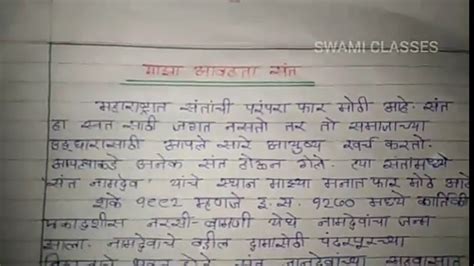 SWAMI CLASSES
माझा आवडता संत
महाराष्ट्रात संतांची परंपरा फार मोठी आहे. संत
हा स्वतः साठी जगत नसतो तर तो समाजाच्या
उद्धारासाठी आपले सारे आयुष्य खर्च करतो.
आपल्याकडे अनेक संत होऊन गेले. त्या संतांमध्ये
'संत नामदेव' यांचे स्थान माझ्या मनात फार मोठे आहे
शके ११९२ म्हणजे इ.स. १२७० मध्ये कार्तिकी
एकादशीस नरसी-बामणी येथे नामदेवांचा जन्म
झाला. नामदेवांचे वडील दामासेठी पंढरपूरच्या